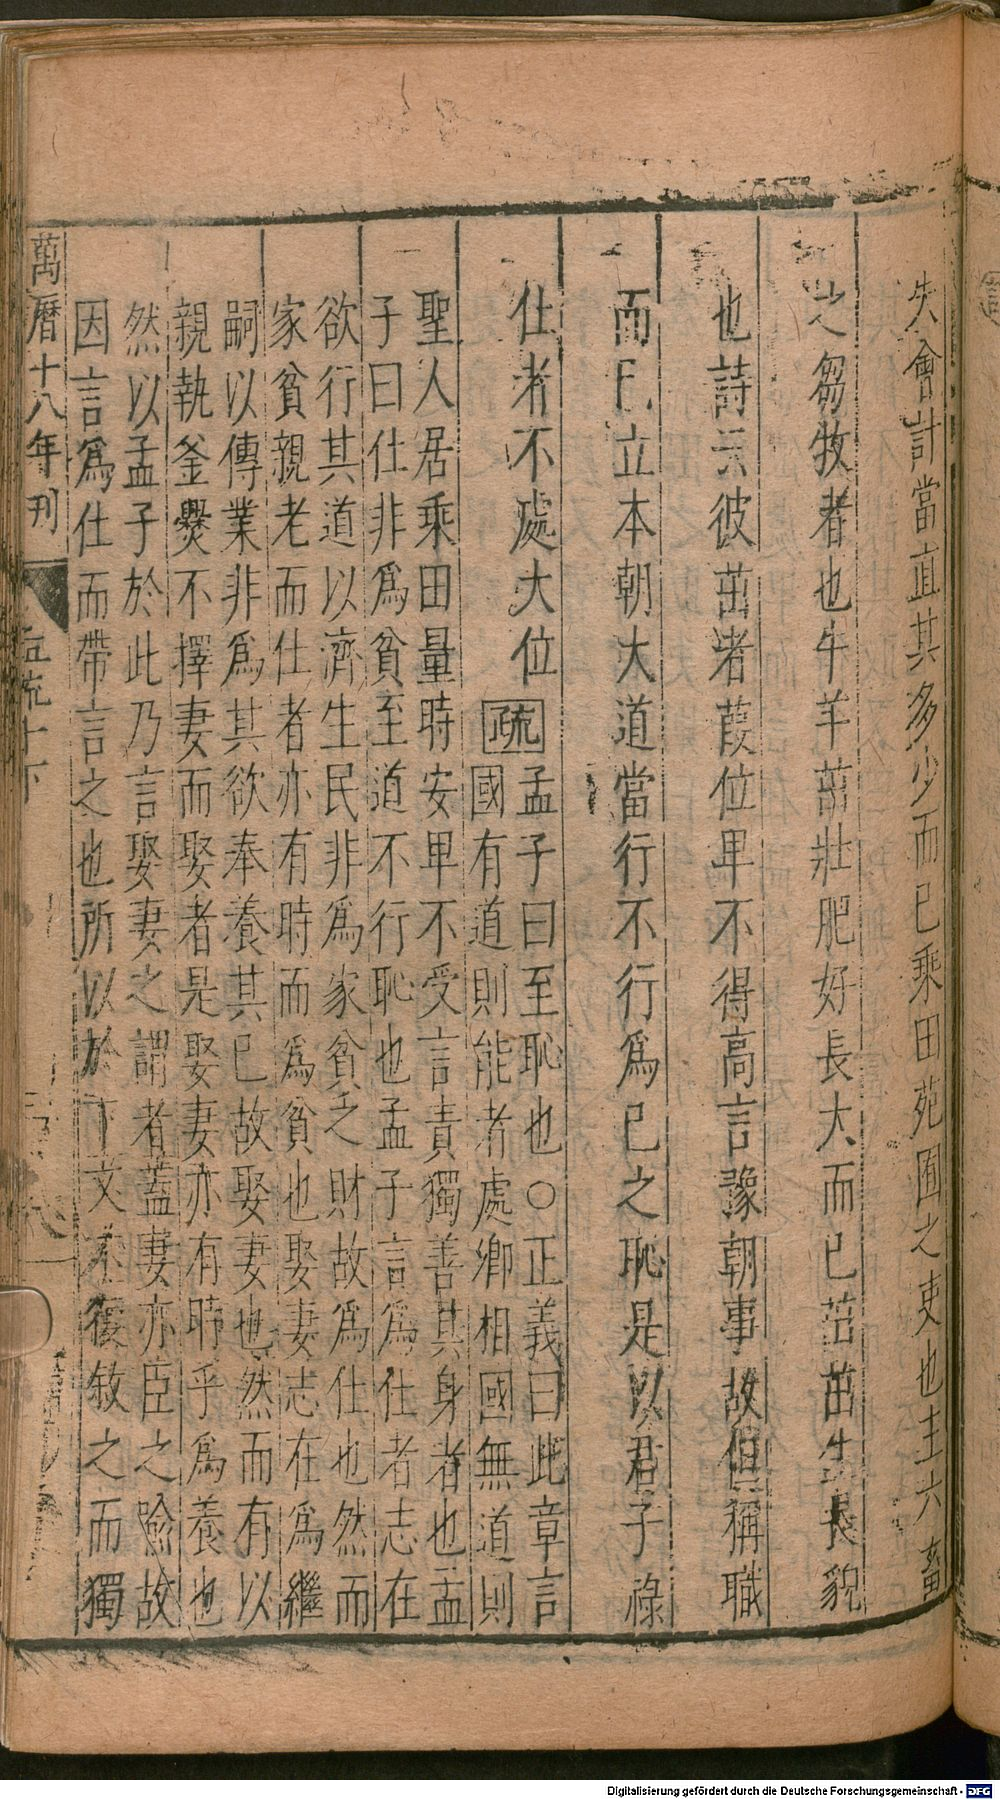 失會計當直其多少而已乘田苑囿之吏也主六畜
之芻牧者也牛羊茁壯肥好長大而已茁茁生長貌
也詩云彼茁者葭位卑不得高言豫朝事故但稱職
而已立本朝大道當行不行爲已之恥是以君子祿
仕者不處大位
疏
孟子曰至恥也○正義曰此章言
國有道則能者處卿相國無道則
聖人居乘田量時安卑不受言責獨善其身者也孟
子曰仕非爲貧至道不行恥也孟子言爲仕者志在
欲行其道以濟生民非爲家貧乏財故爲仕也然而
家貧親老而仕者亦有時而爲貧也娶妻志在爲繼
嗣以傳業非爲其欲奉養其已故娶妻也然而有以
親執釜爨不擇妻而娶者是娶妻亦有時乎爲養也
然以孟子於此乃言娶妻之謂者蓋妻亦臣之喩故
因言爲仕而帶言之也所以於下文不復敘之而獨
萬曆十八年刊
孟疏十下
Digitalisierung gefördert durch die Deutsche Forschungsgemeinschaft - DFG